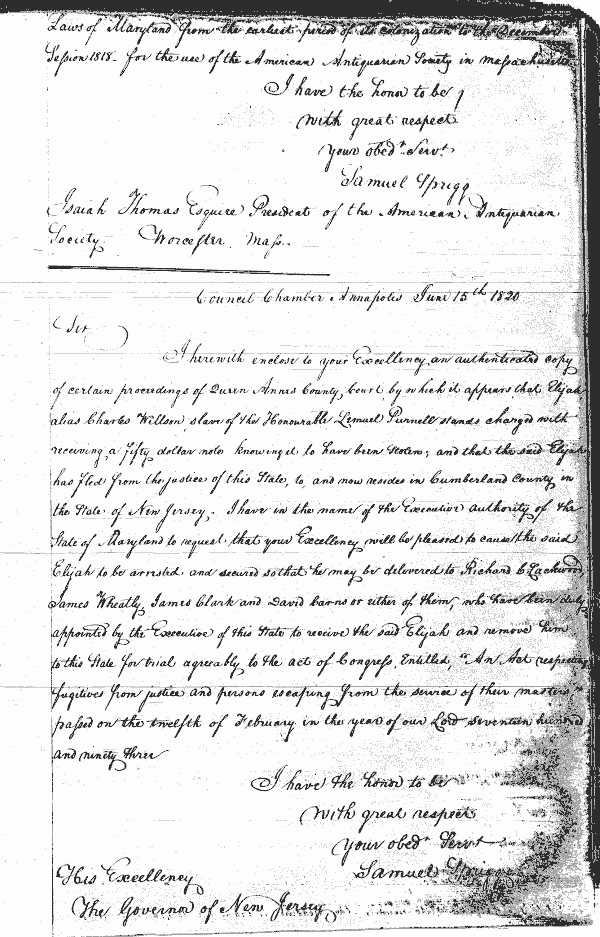 Laws of Maryland from the earliest period of its colonization to the December
Session 1818. for the use of the American Antiquarian Society in Massachusetts.
I have the honor to be
with great respect
your obedt. Servt.
Samuel Sprigg
Isaiah Thomas Esquire President of the American Antiquarian
Society. Worcester. Mass.
Council Chamber Annapolis June 15th 1820
Sir
I herewith enclose to your Excellency an authenticated copy
of certain proceedings of Queen Annes County, Court by which it appears that Elijah
alias Charles Willson, slave of the Honourable Lemuel Purnell stands charged with
receiving a fifty dollar note knowing it to have been stolen; and that the said Elijah
has fled from the justice of this State, to, and now resides in Cumberland County in
the State of New Jersey. I have in the name of the Executive authority of the
State of Maryland to request that your Excellency will be pleased to cause the said
Elijah to be arrested and secured so that he may be delivered to Richard C Lackwood,
James Wheatly, James Clark and David Carns or either of them, who have been duly
appointed by the Executive of this State to receive the said Elijah and remove him
to this State for trial agreably to the act of Congress, Entitled, "An Act respecting
fugitives from justice and persons escaping from the service of their masters"
passed on the twelfth of February in the year of our Lord seventeen hundred
and ninety three
I have the honor to be
With great respect
Your obedt Servt
Samuel Sprigg
His Excellency
The Governor of New Jersey